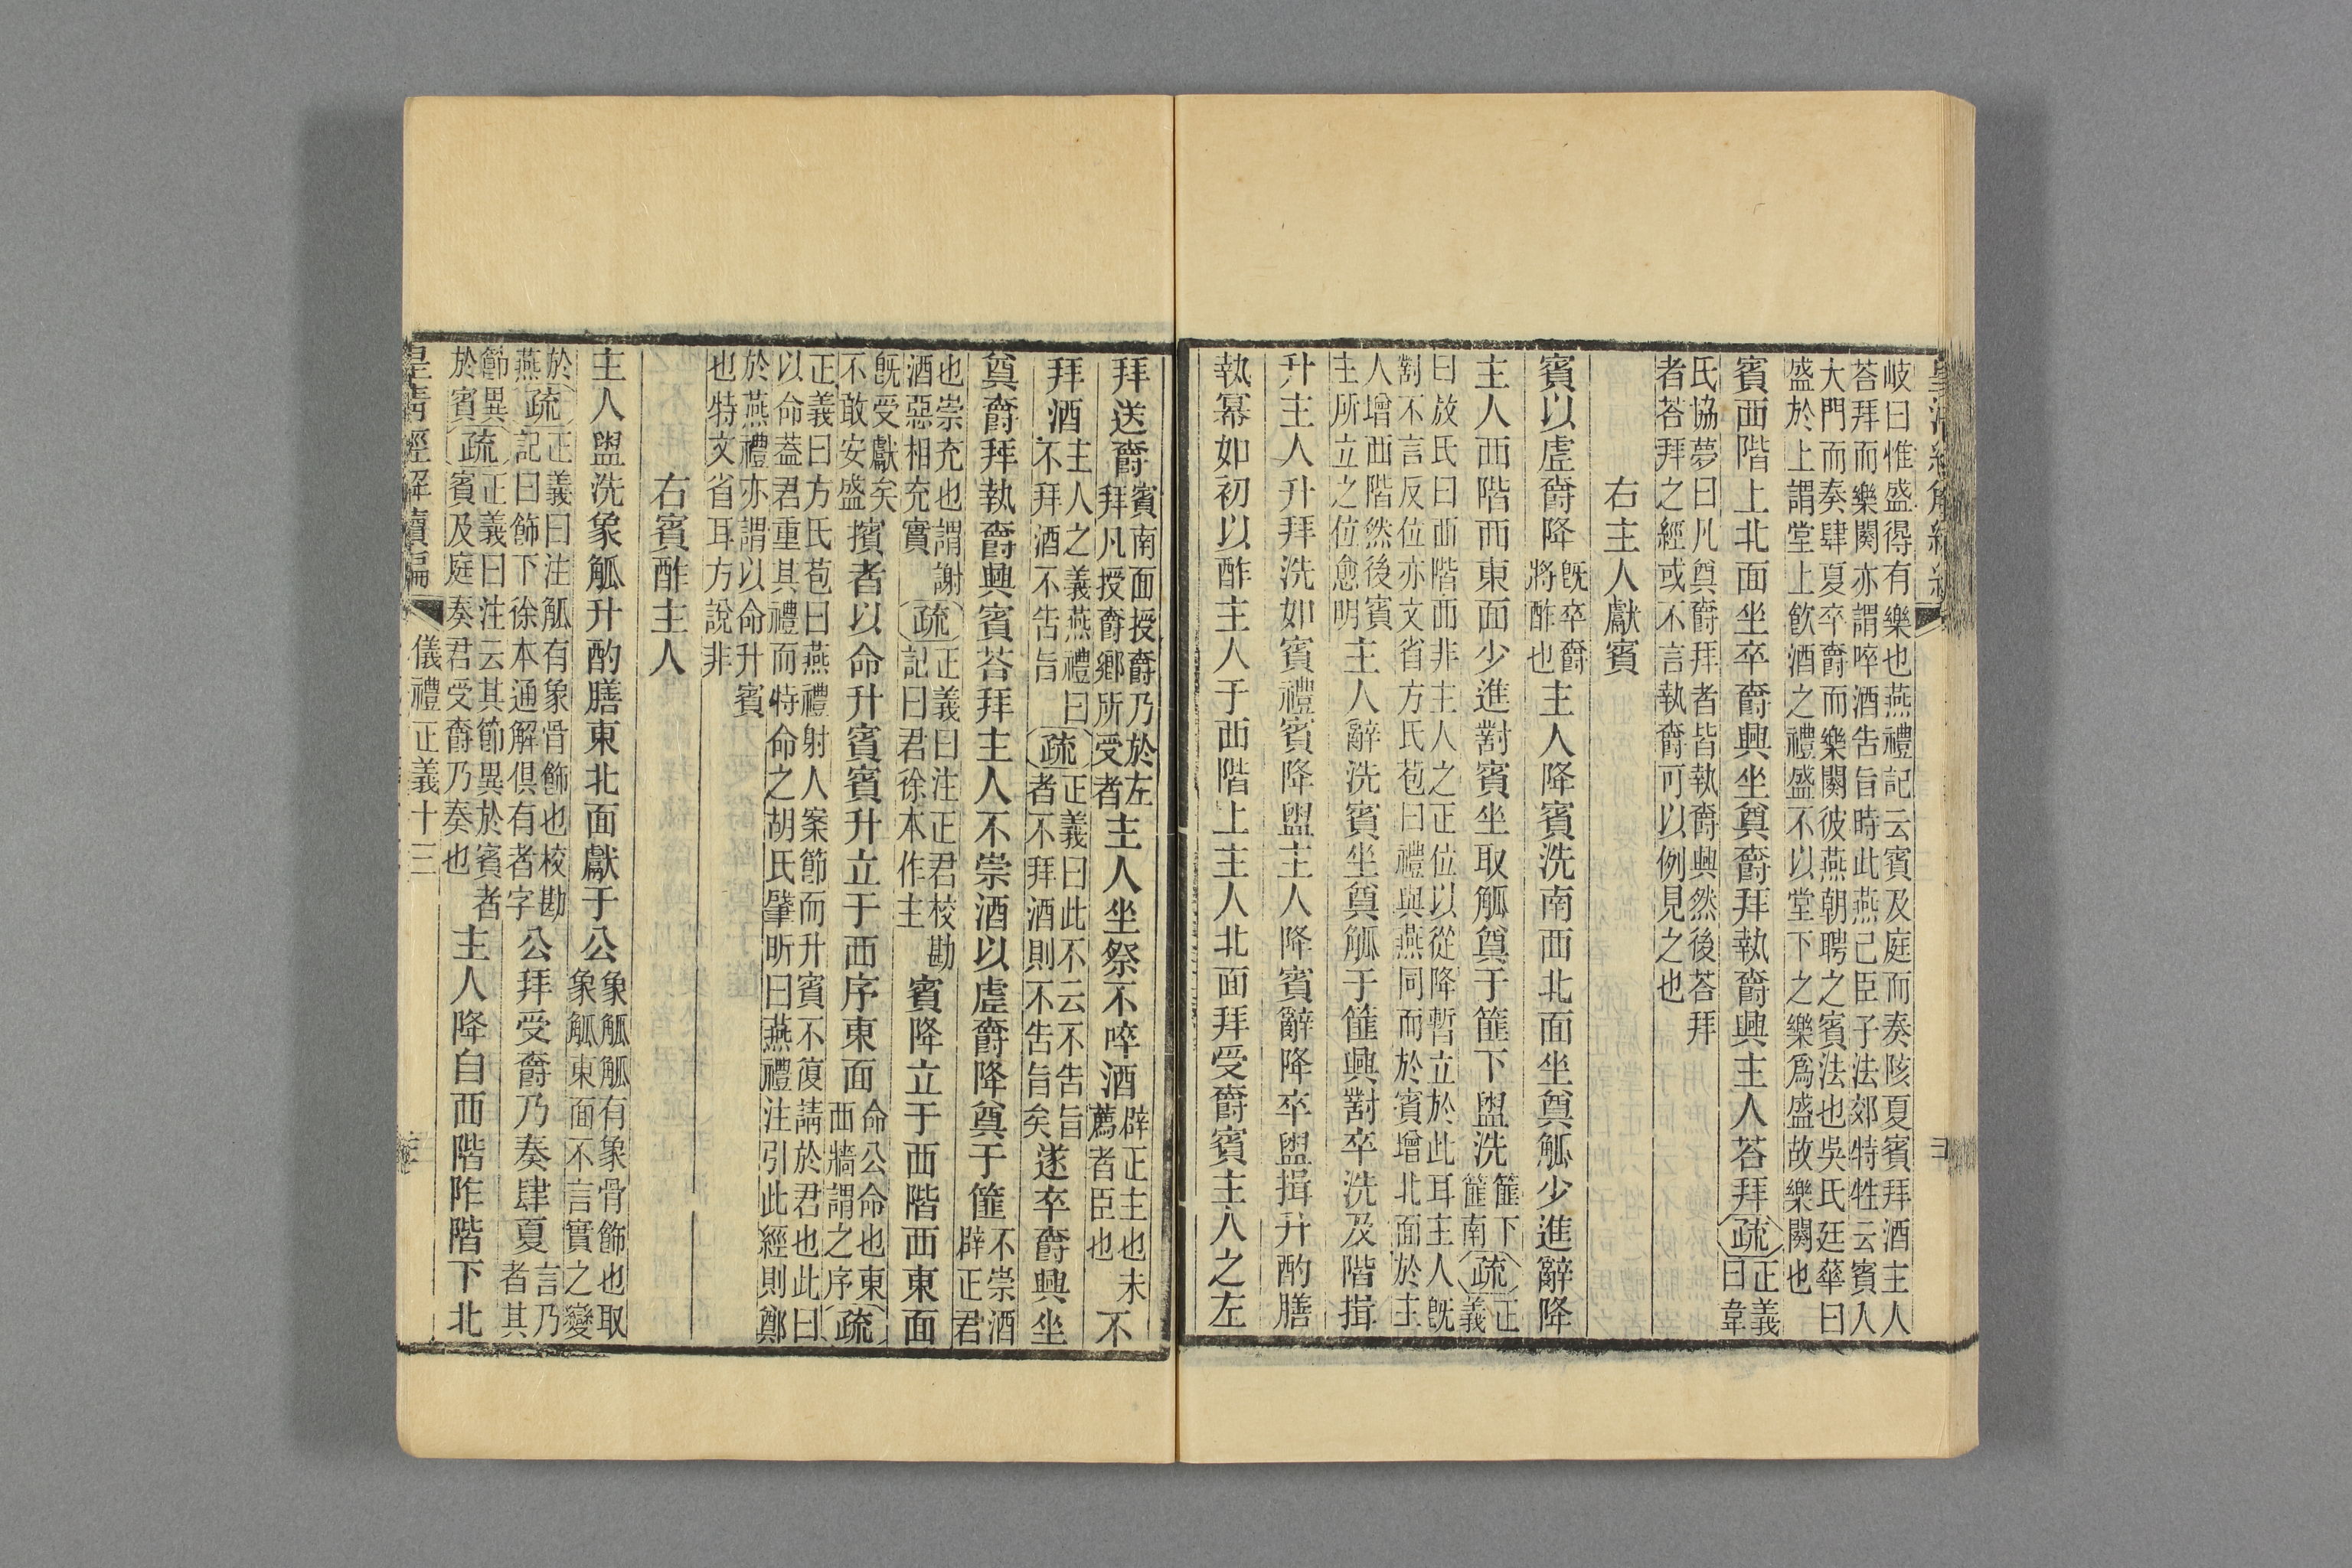 岐曰惟盛得有樂也燕禮記云賓及庭而奏陔夏賓拜酒主人
荅拜而樂闋亦謂啐酒告旨時此燕己臣子法郊特牲云賓入
大門而奏肆夏卒爵而樂闋彼燕朝聘之賓法也吳氏廷華曰
盛於上謂堂上飲酒之禮盛不以堂下之樂爲盛故樂闋也
賓西階上北面坐卒爵興坐奠爵拜執爵興主人荅拜疏正義曰韋
氏協夢曰凡奠爵拜者皆執爵興然後荅拜
者荅拜之經或不言執爵可以例見之也
右主人獻賓
賓以虛爵降既卒爵將酢也主人降賓洗南西北面坐奠觚少進辭降
主人西階西東面少進對賓坐取觚奠于篚下盥洗篚下篚南疏正義
曰敖氏曰西階西非主人之正位以從降暫立於此耳主人既
對不言反位亦文省方氏苞曰禮與燕同而於賓增北面於主
人增西階然後賓主所立之位愈明主人辭洗賓坐奠觚于篚興對卒洗及階揖
升主人升拜洗如賓禮賓降盥主人降賓辭降卒盥揖升酌膳
執冪如初以酢主人于西階上主人北面拜受爵賓主人之左
拜送爵賓南面授爵乃於左拜凡授爵鄉所受者主人坐祭不啐酒辟正主也未薦者臣也不
拜酒主人之義燕禮曰不拜酒不告旨疏正義曰此不云不告旨者不拜酒則不告旨矣遂卒爵興坐
奠爵拜執爵興賓荅拜主人不崇酒以虛爵降奠于篚不崇酒辟正君
也崇充也謂謝酒惡相充實疏正義曰注正君校勘記曰君徐本作主賓降立于西階西東面
既受獻矣不敢安盛擯者以命升賓賓升立于西序東面命公命也東西牆謂之序疏
正義曰方氏苞曰燕禮射人案節而升賓不復請於君也此曰
以命葢君重其禮而特命之胡氏肈昕曰燕禮注引此經則鄭
於燕禮亦謂以命升賓
也特文省耳方說非
右賓酢主人
主人盥洗象觚升酌膳東北面獻于公象觚觚有象骨飾也取象觚東面不言實之變
於燕疏正義曰注觚有象骨飾也校勘記曰飾下徐本通解俱有者字公拜受爵乃奏肆夏言乃者其
節異於賓疏正義曰注云其節異於賓者賓及庭奏君受爵乃奏也主人降自西階阼階下北
皇清經解續編 儀禮正義十三